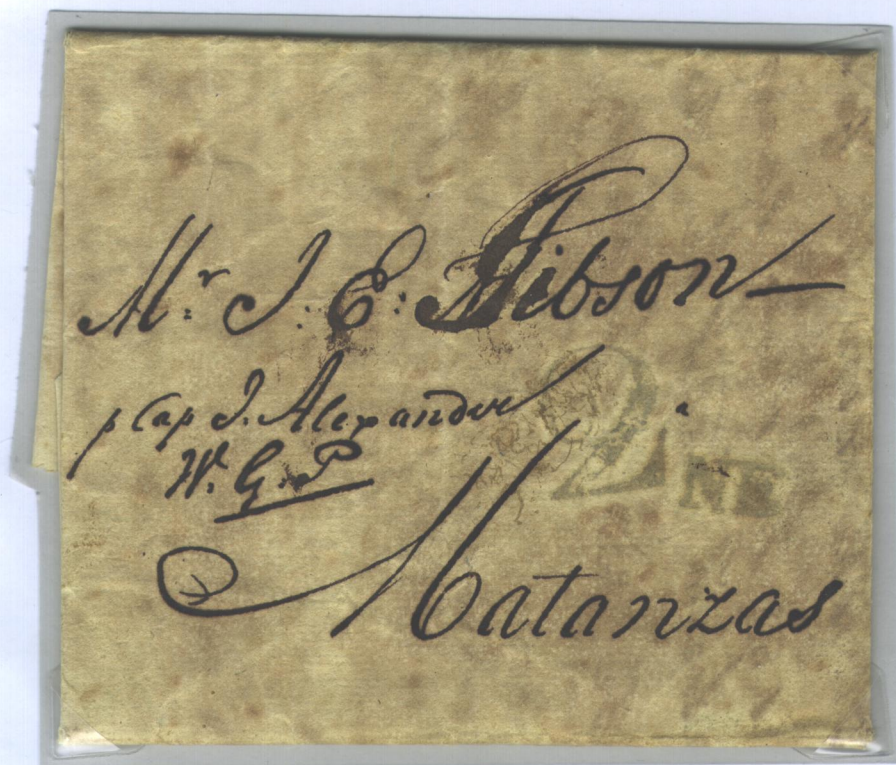 Mr. J: E: Gibson
p Cap J. Alexander
W. G. P
2
NE
Matanzas